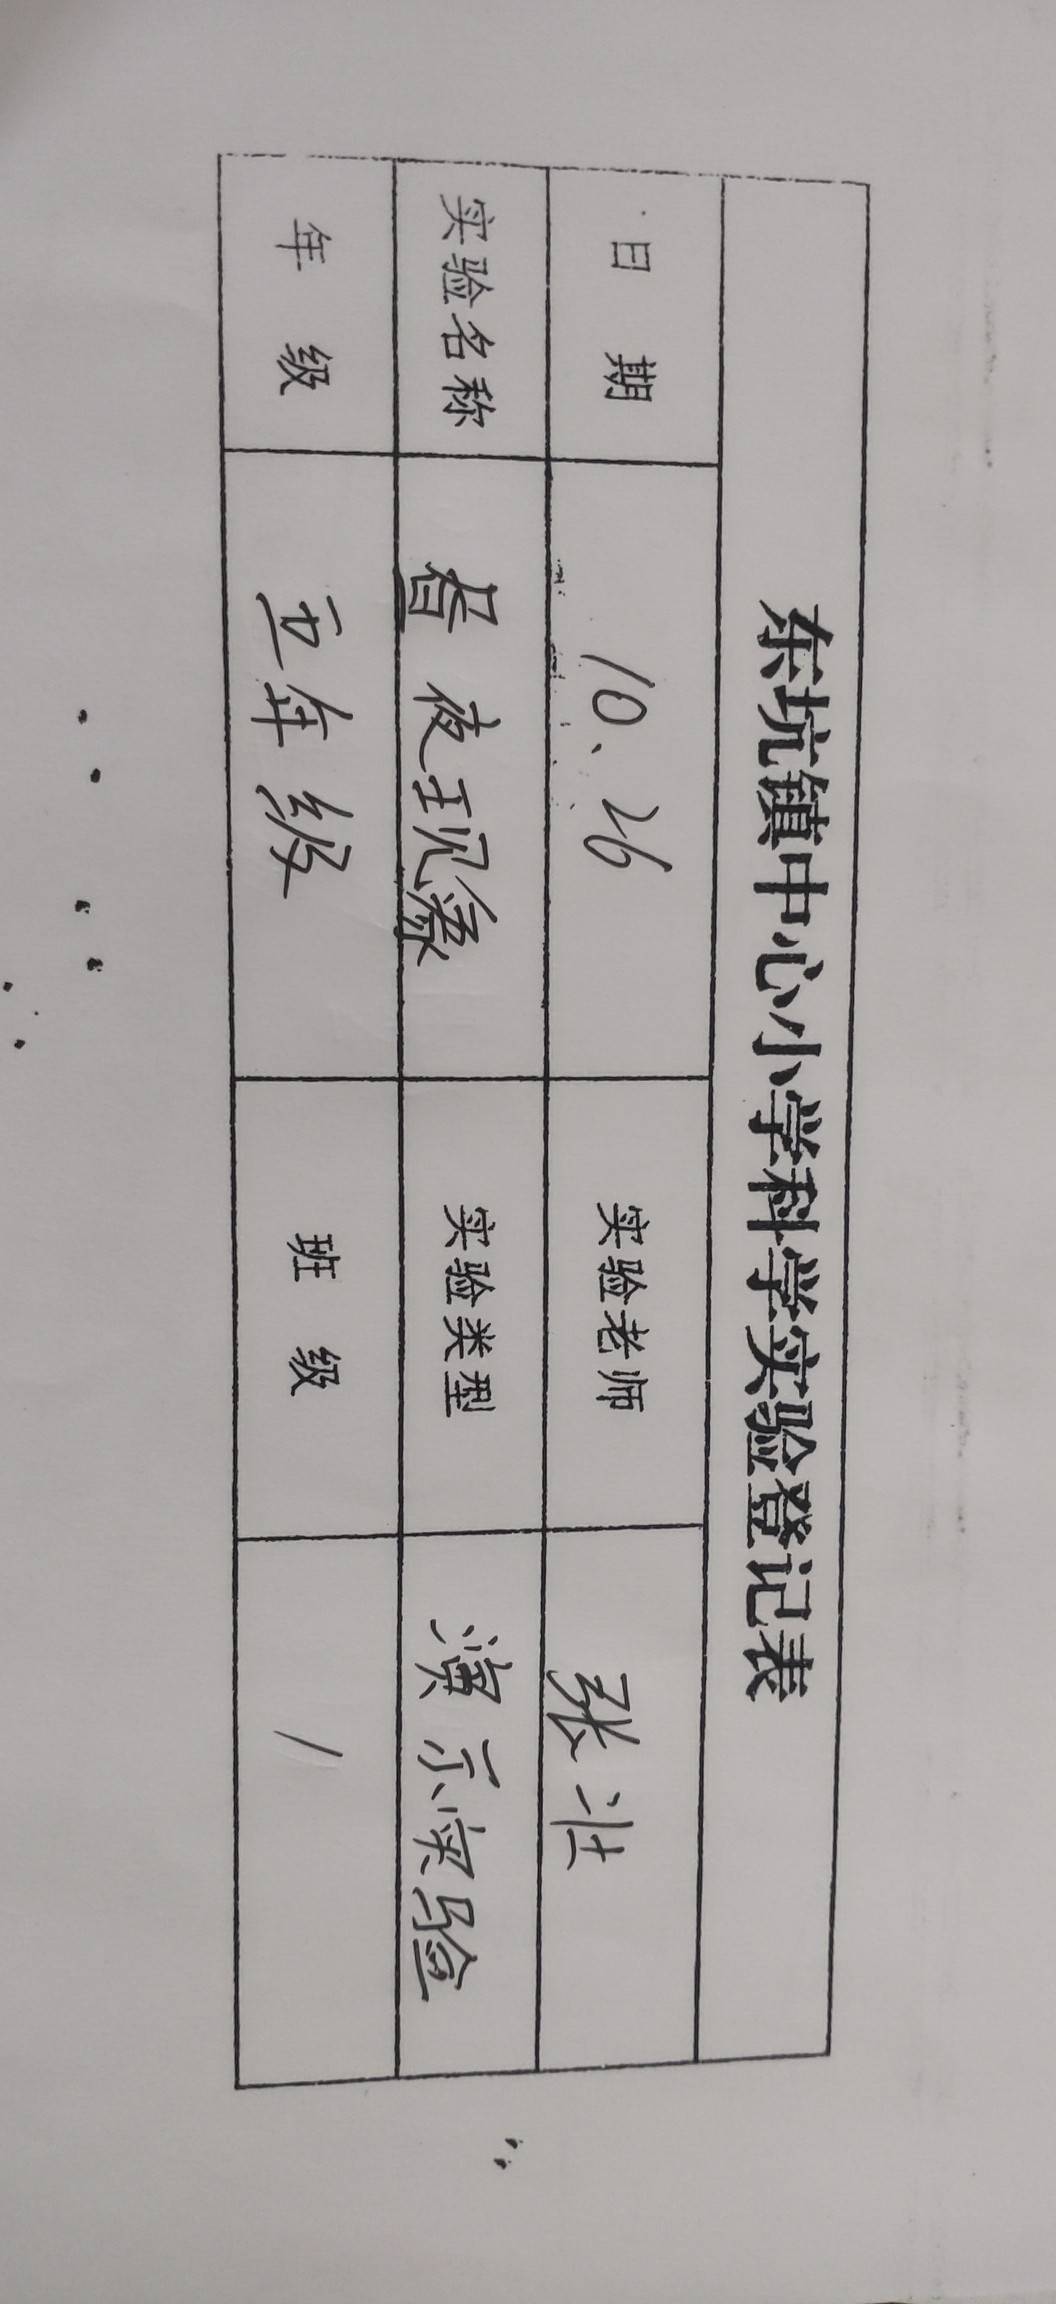 东坑镇中心小学科学实验登记表
日 期 10、26 实验老师 张壮
实验名称 昼夜现象 实验类型 演示实验
年 级 五年级 班 级 1